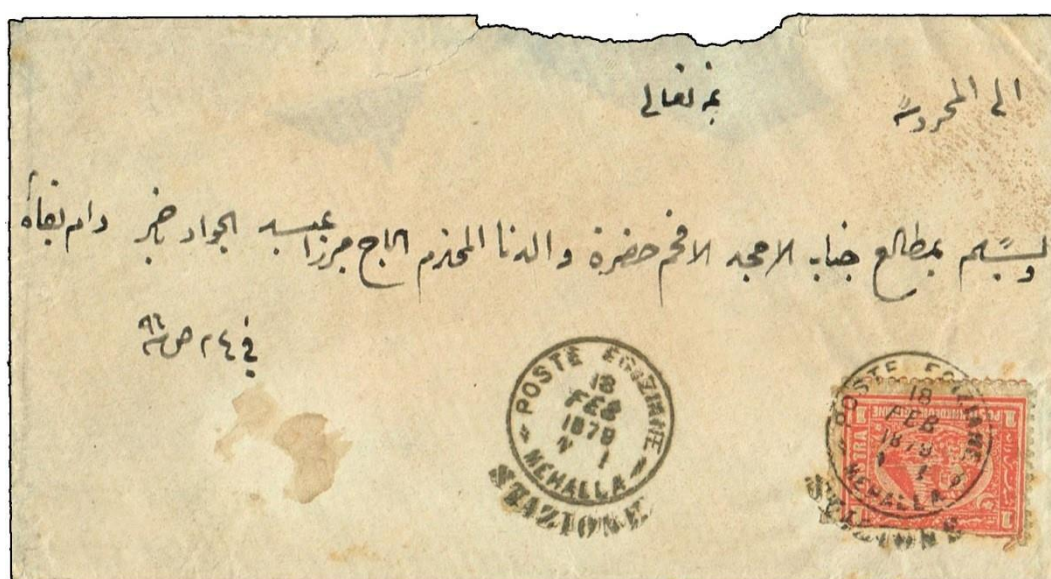 الى المحروسة
بمنه تعالى
بمطالع جناب الامجد الافخم حضرة والدنا المحترم الحاج ميرزا عبد الجواد دام بقاه
في ٢٤ ص ٩٦ سنة
POSTE EGIZIANE
18
FEB
1879
N 1
MEHALLA
STAZIONE
POSTE EGIZIANE
18
FEB
1879
1
MEHALLA
STAZIONE